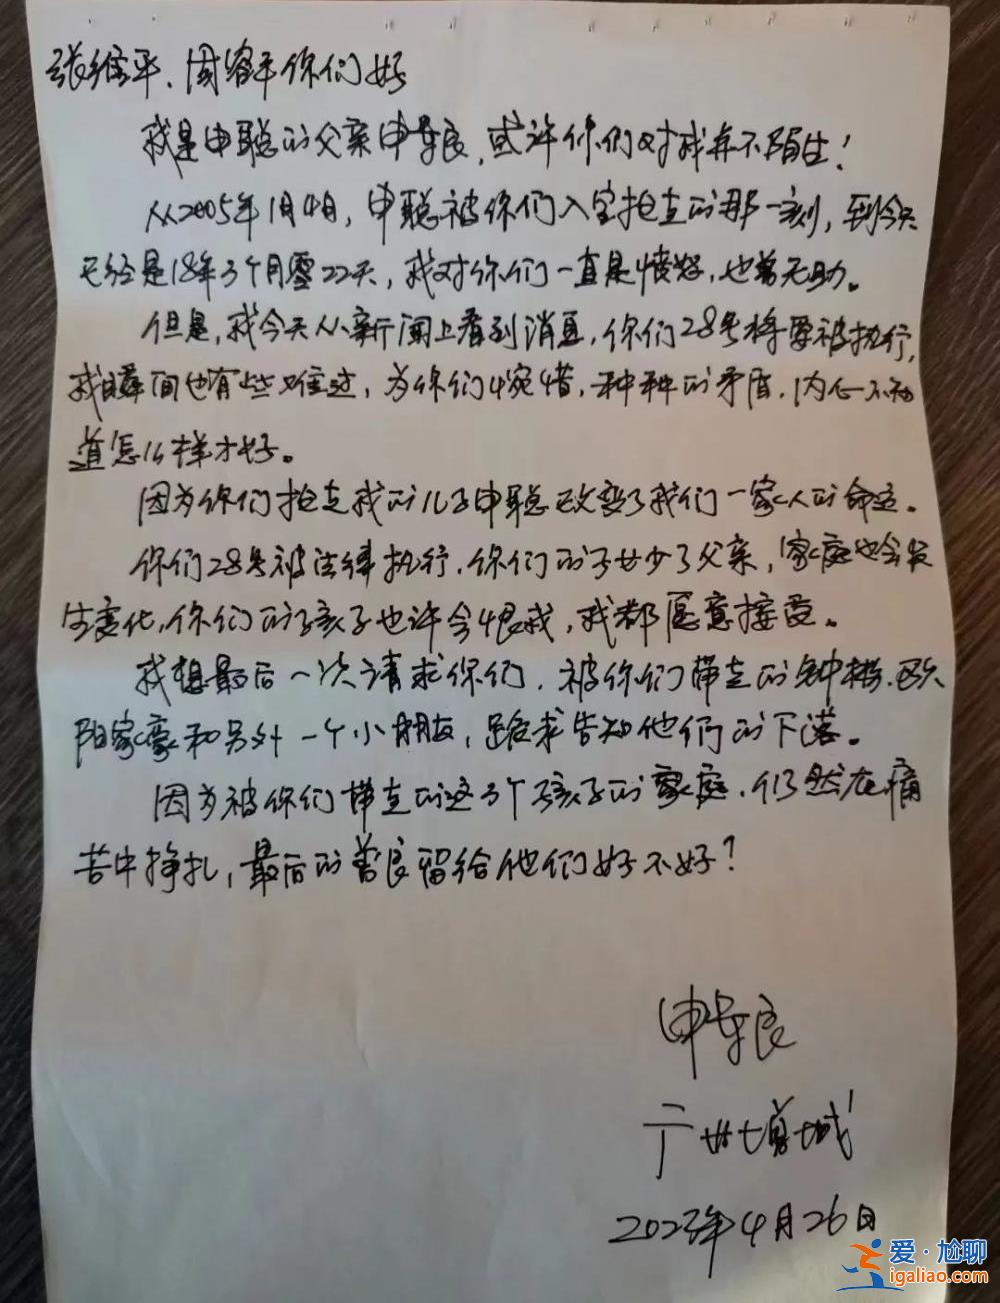 张维平、周容平你们好
我是申聪的父亲申军良,或许你们对我并不陌生!
从2005年1月4日,申聪被你们入室抢走的那一刻,到今天
已经是18年3个月零22天,我对你们一直是愤怒,也曾无助。
但是,我今天从新闻上看到消息,你们28号将要被执行,
我瞬间也有些难过,为你们惋惜,种种的矛盾,内心不知
道怎么样才好。
因为你们抢走我的儿子申聪改变了我们一家人的命运。
你们28号被法律执行,你们的子女少了父亲,家庭也会发
生变化,你们的孩子也许会恨我,我都愿意接受。
我想最后一次请求你们,被你们带走的钟彬、欧
阳家豪和另外一个小朋友,跪求告知他们的下落。
因为被你们带走的这3个孩子的家庭,仍然在痛
苦中挣扎,最后的善良留给他们好不好?
申军良
广州增城
2023年4月26日
爱·尬聊
igaliao.com